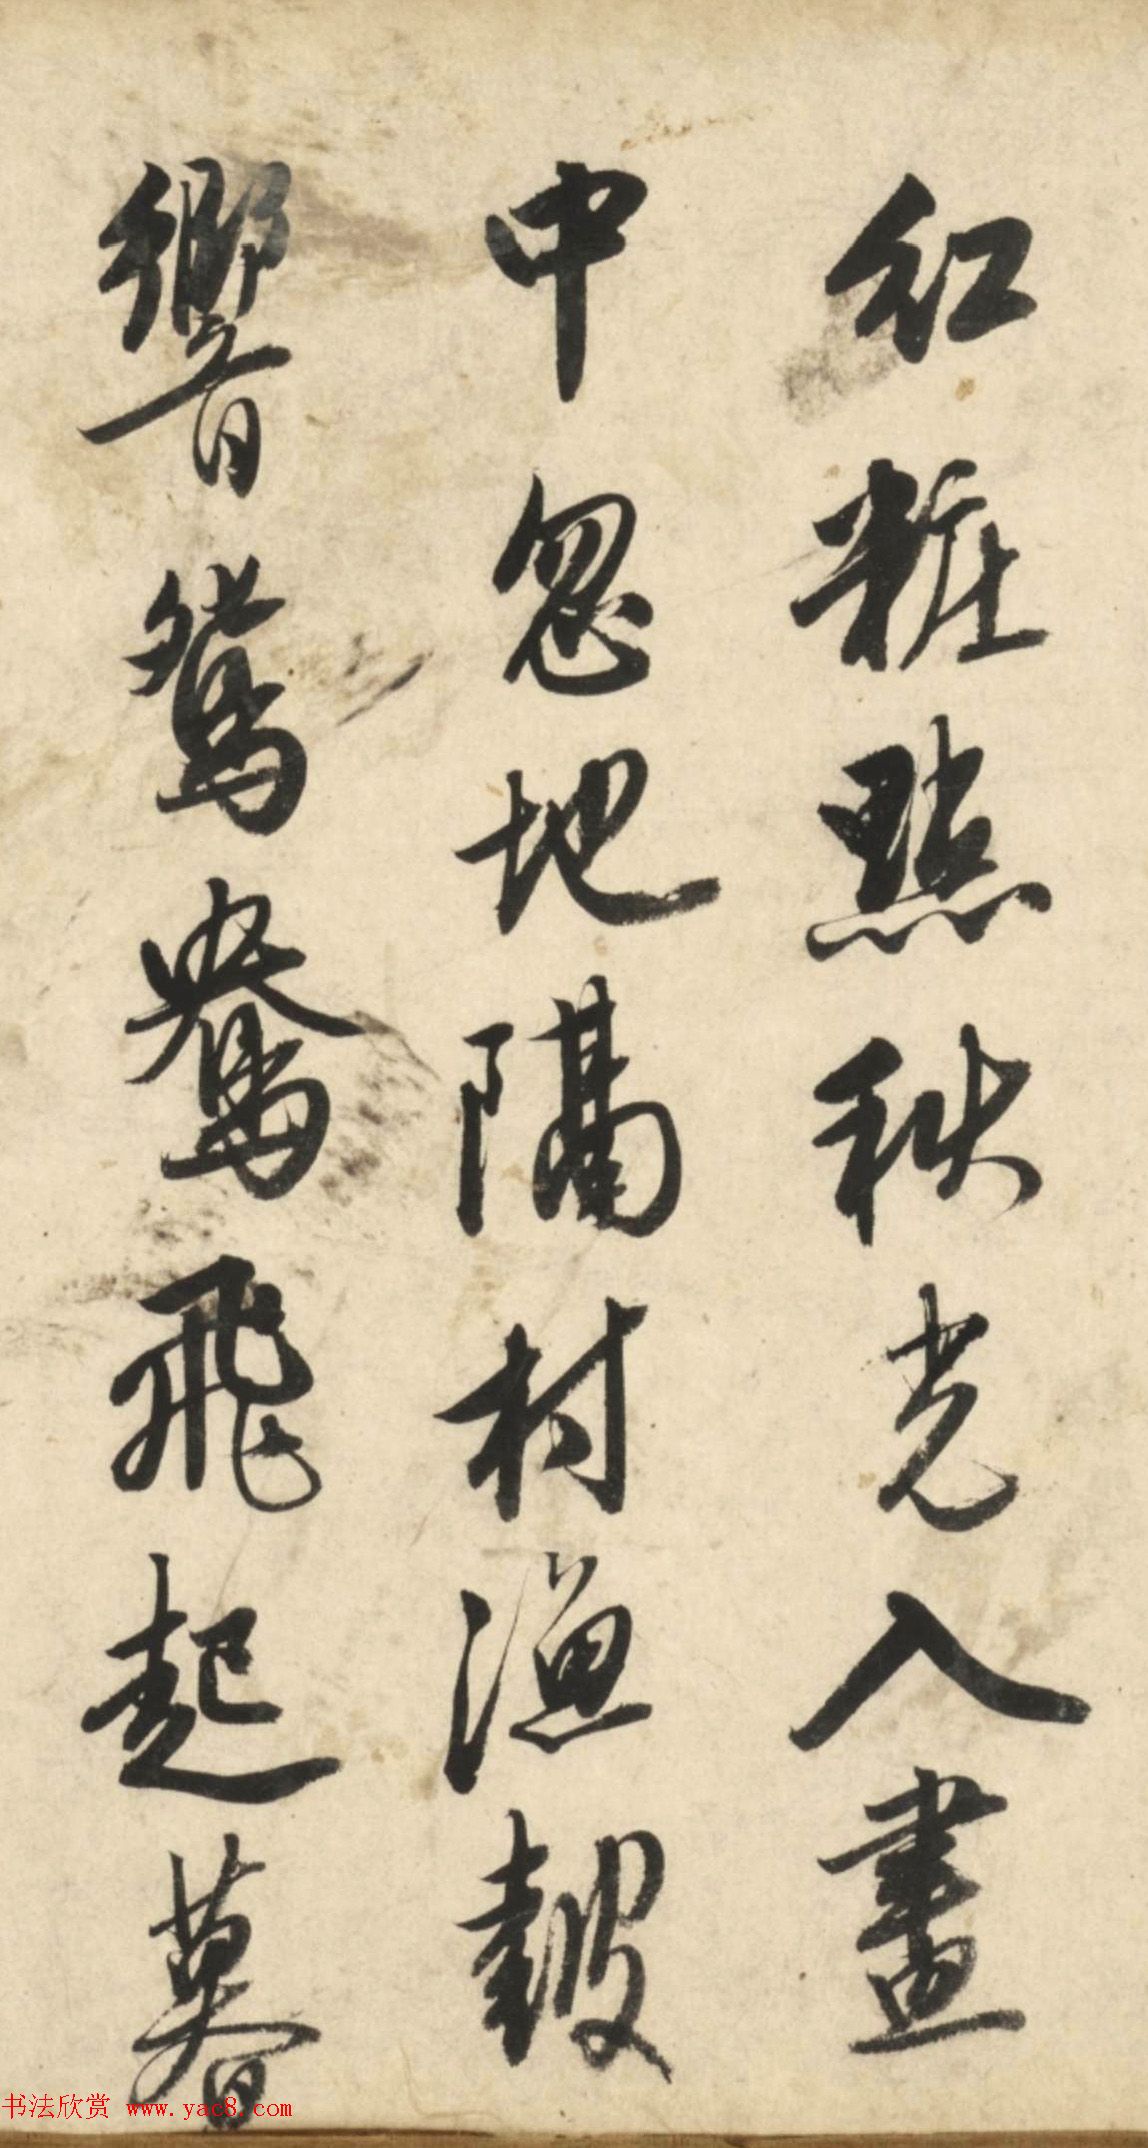 紅粧點秋光入畫
中忽地隔村漁鼓
響鴛鴦飛起暮
书法欣赏 www.yac8.com